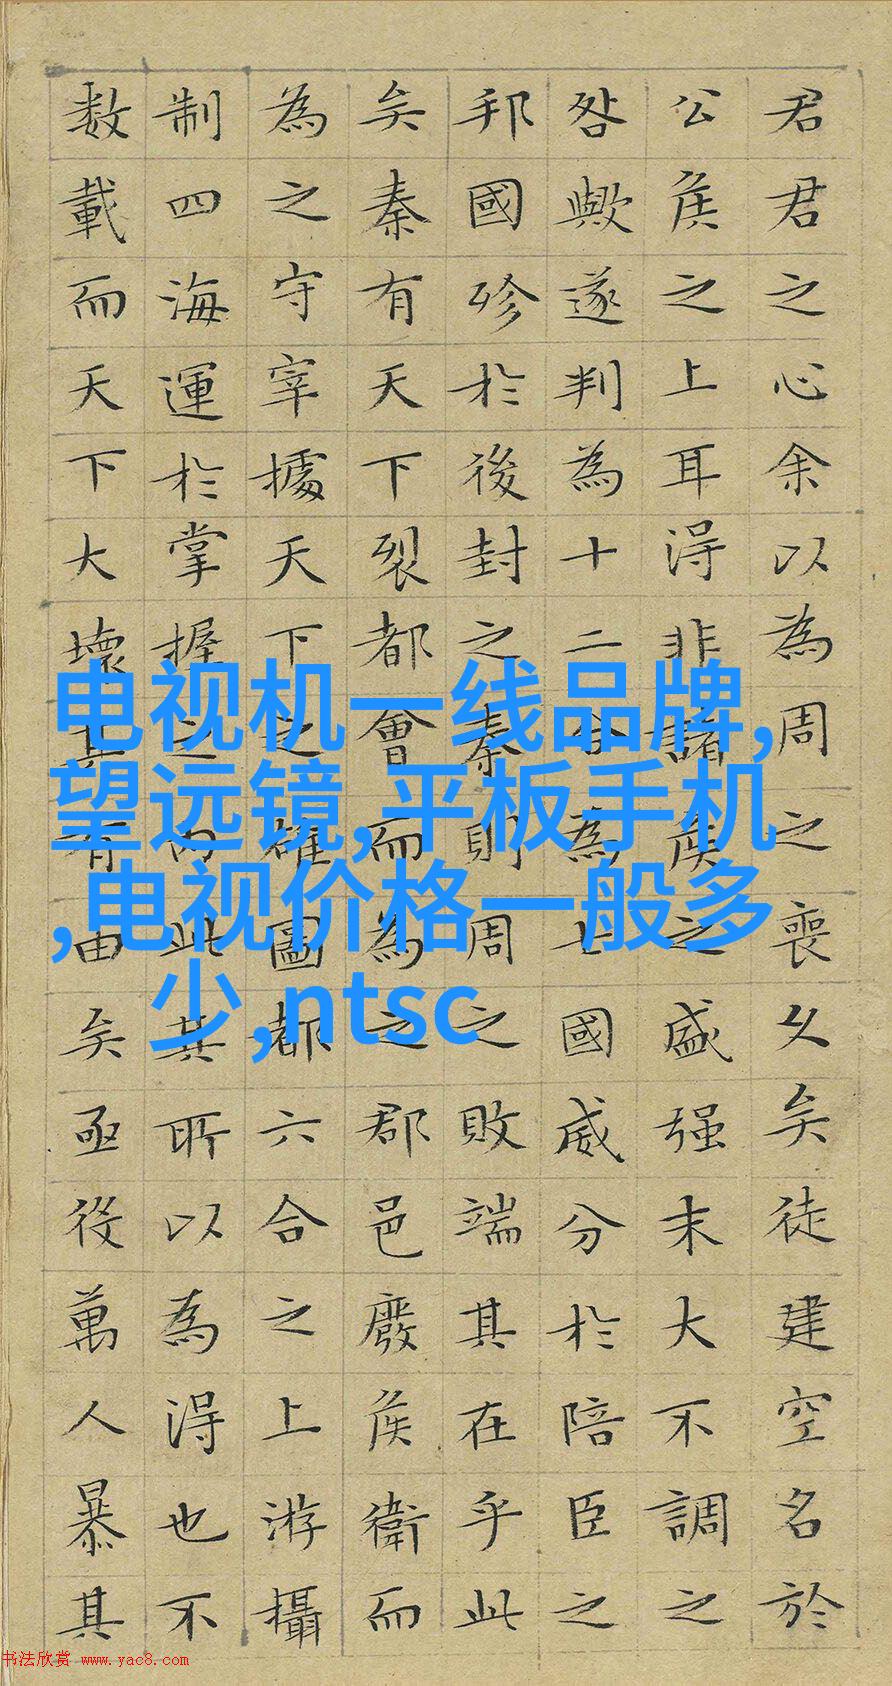 君君之心余以為周之喪久矣徒建空名於
公侯之上耳得非諸侯之盛强末大不調之
咎歟遂判為十二合為七國威分於陪臣之
邦國殄於後封之秦則周之敗端其在乎此
矣秦有天下裂都會而為之郡邑廢侯衛而
為之守宰據天下之雄圖都六合之上游攝
制四海運於掌握之內此其所以為得也不
数載而天下大壞其有由矣亟役萬人暴其
电视机一线品牌,
望远镜,平板手机
,电视价格一般多
少,ntsc
书法欣赏 www.yac8.com